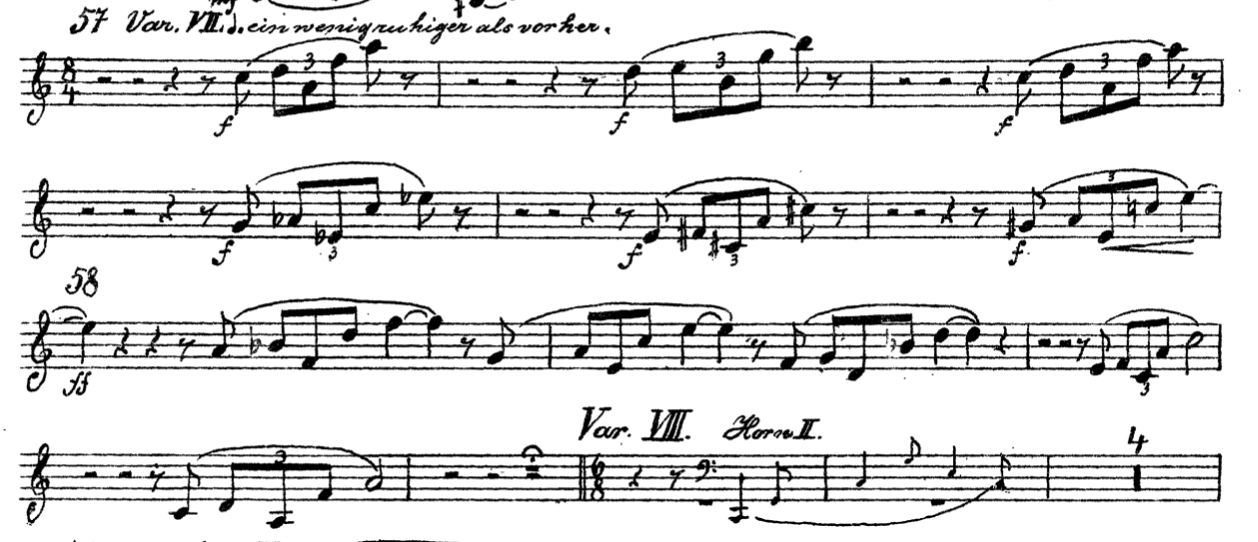 57 Var. VII. ♩. ein wenig ruhiger als vorher.
8 3 3 3
4
f f f
3
f 3 f 3 f
58
ff 3
3
Var. VIII. Horn II. 4
6
8